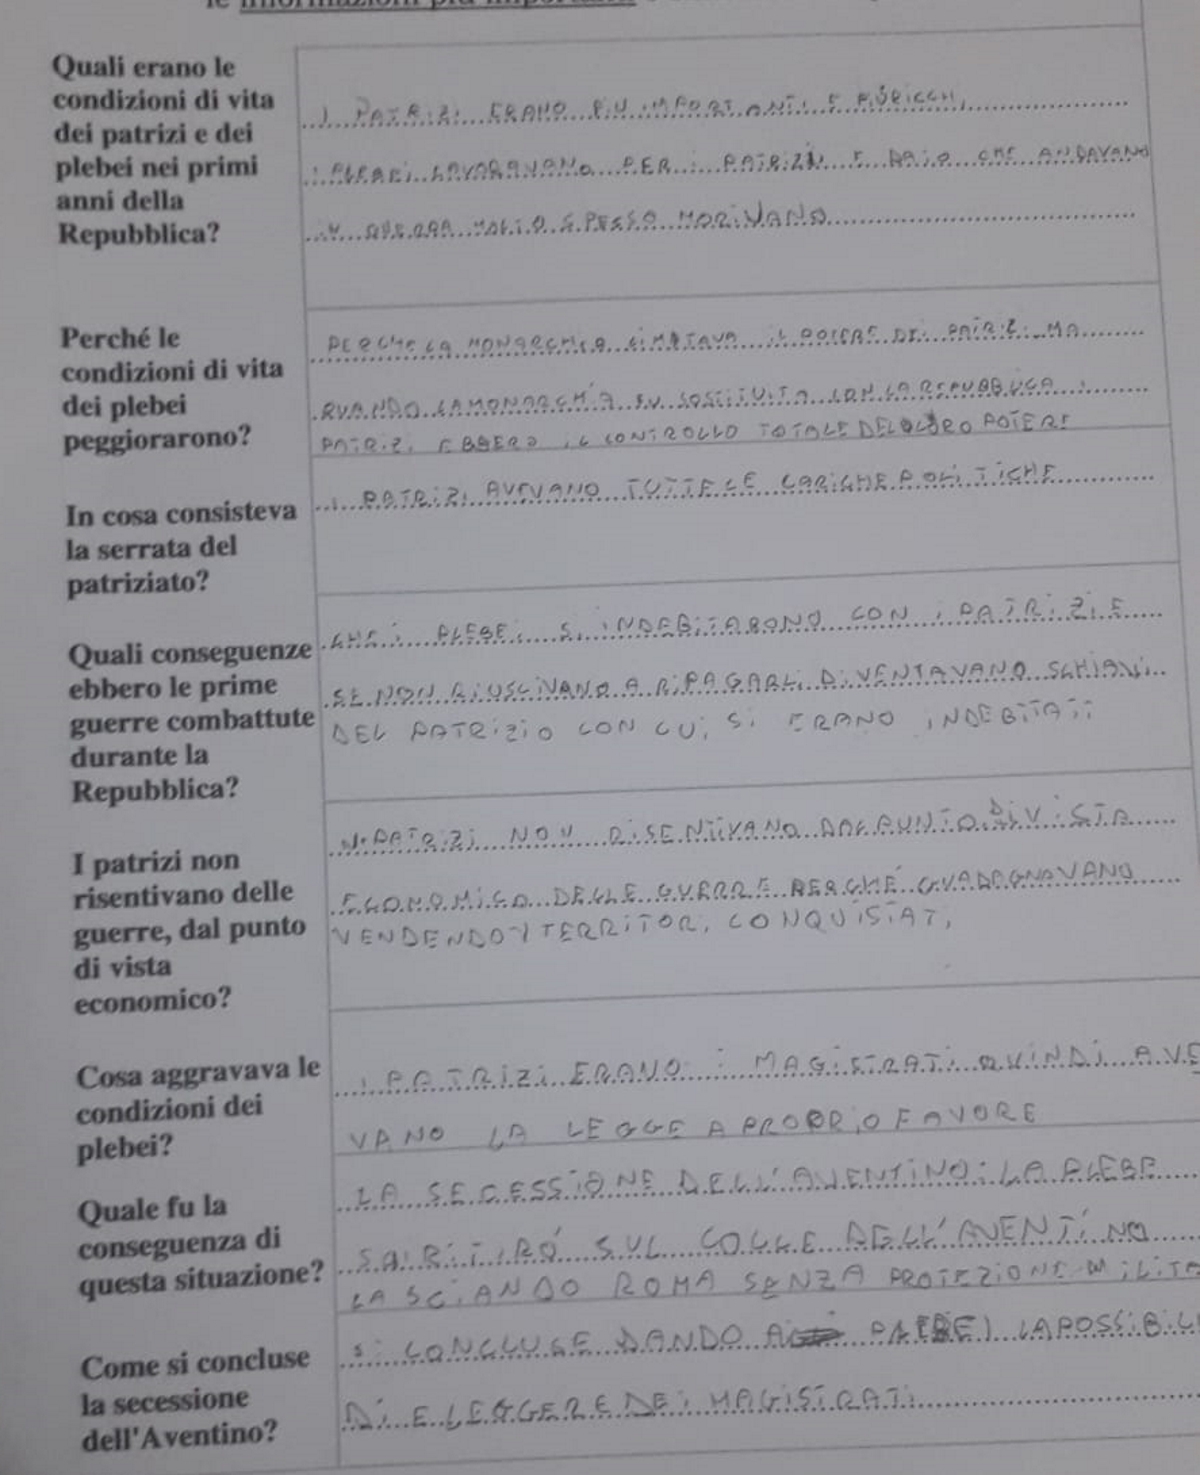 le informazioni più importanti
Quali erano le
condizioni di vita
dei patrizi e dei
plebei nei primi
anni della
Repubblica?
I PATRIZI ERANO PIÚ IMPORTANTI E PIÚ RICCHI,
I PLEBEI LAVORAVANO PER I PATRIZI E DATO CHE ANDAVANO
IN GUERRA MOLTO SPESSO MORIVANO
Perché le
condizioni di vita
dei plebei
peggiorarono?
PERCHE LA MONARCHIA LIMITAVA IL POTERE DEI PATRIZI MA
QUANDO LA MONARCHIA FU SOSTITUITA CON LA REPUBBLICA I
PATRIZI EBBERO IL CONTROLLO TOTALE DEL LORO POTERE
In cosa consisteva
la serrata del
patriziato?
I PATRIZI AVEVANO TUTTE LE CARICHE POLITICHE
Quali conseguenze
ebbero le prime
guerre combattute
durante la
Repubblica?
CHE I PLEBEI SI INDEBITARONO CON I PATRIZI E
SE NON RIUSCIVANO A RIPAGARLI DIVENTAVANO SCHIAVI
DEL PATRIZIO CON CUI SI ERANO INDEBITATI
I patrizi non
risentivano delle
guerre, dal punto
di vista
economico?
I PATRIZI NON RISENTIVANO DAL PUNTO DI VISTA
ECONOMICO DELLE GUERRE PERCHÉ GUADAGNAVANO
VENDENDO I TERRITORI CONQUISTATI
Cosa aggravava le
condizioni dei
plebei?
I PATRIZI ERANO I MAGISTRATI QUINDI AVE
VANO LA LEGGE A PROPRIO FAVORE
Quale fu la
conseguenza di
questa situazione?
LA SECESSIONE DELL'AVENTINO: LA PLEBE
SI RITIRÓ SUL COLLE DELL'AVENTINO
LASCIANDO ROMA SENZA PROTEZIONE MILITA
Come si concluse
la secessione
dell'Aventino?
SI CONCLUSE DANDO AI PLEBEI LA POSSIBILI
DI ELEGGERE DEI MAGISTRATI